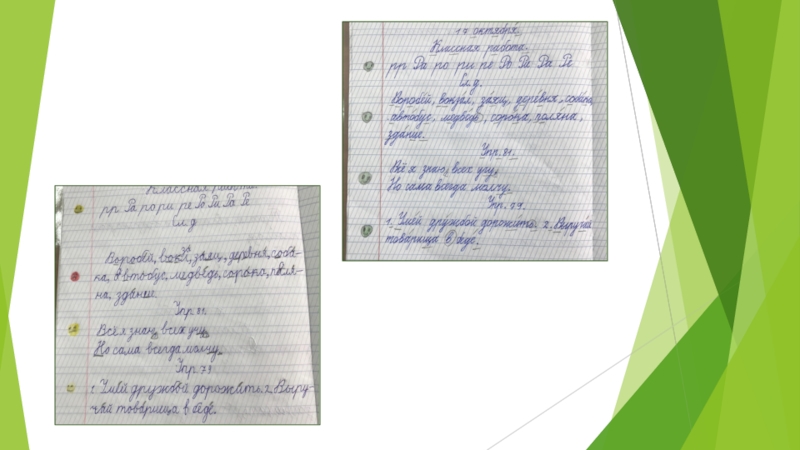 Классная работа.
рр Ра ро ри ре Ро Ри Ра Ре
Сл.д.
Воробей, вокзал, заяц, деревня, соба-
ка, автобус, медведь, сорока, поля-
на, здание.
Упр. 81.
Всё я знаю, всех учу,
Но сама всегда молчу.
Упр. 79
1. Умей дружбой дорожить. 2. Выру-
чай товарища в беде.
17 октября.
Классная работа.
рр Ра ро ри ре Ро Ри Ра Ре
Сл.д.
Воробей, вокзал, заяц, деревня, собака,
автобус, медведь, сорока, поляна,
здание.
Упр. 81.
Всё я знаю, всех учу,
Но сама всегда молчу.
Упр. 79.
1. Умей дружбой дорожить. 2. Выручай
товарища в